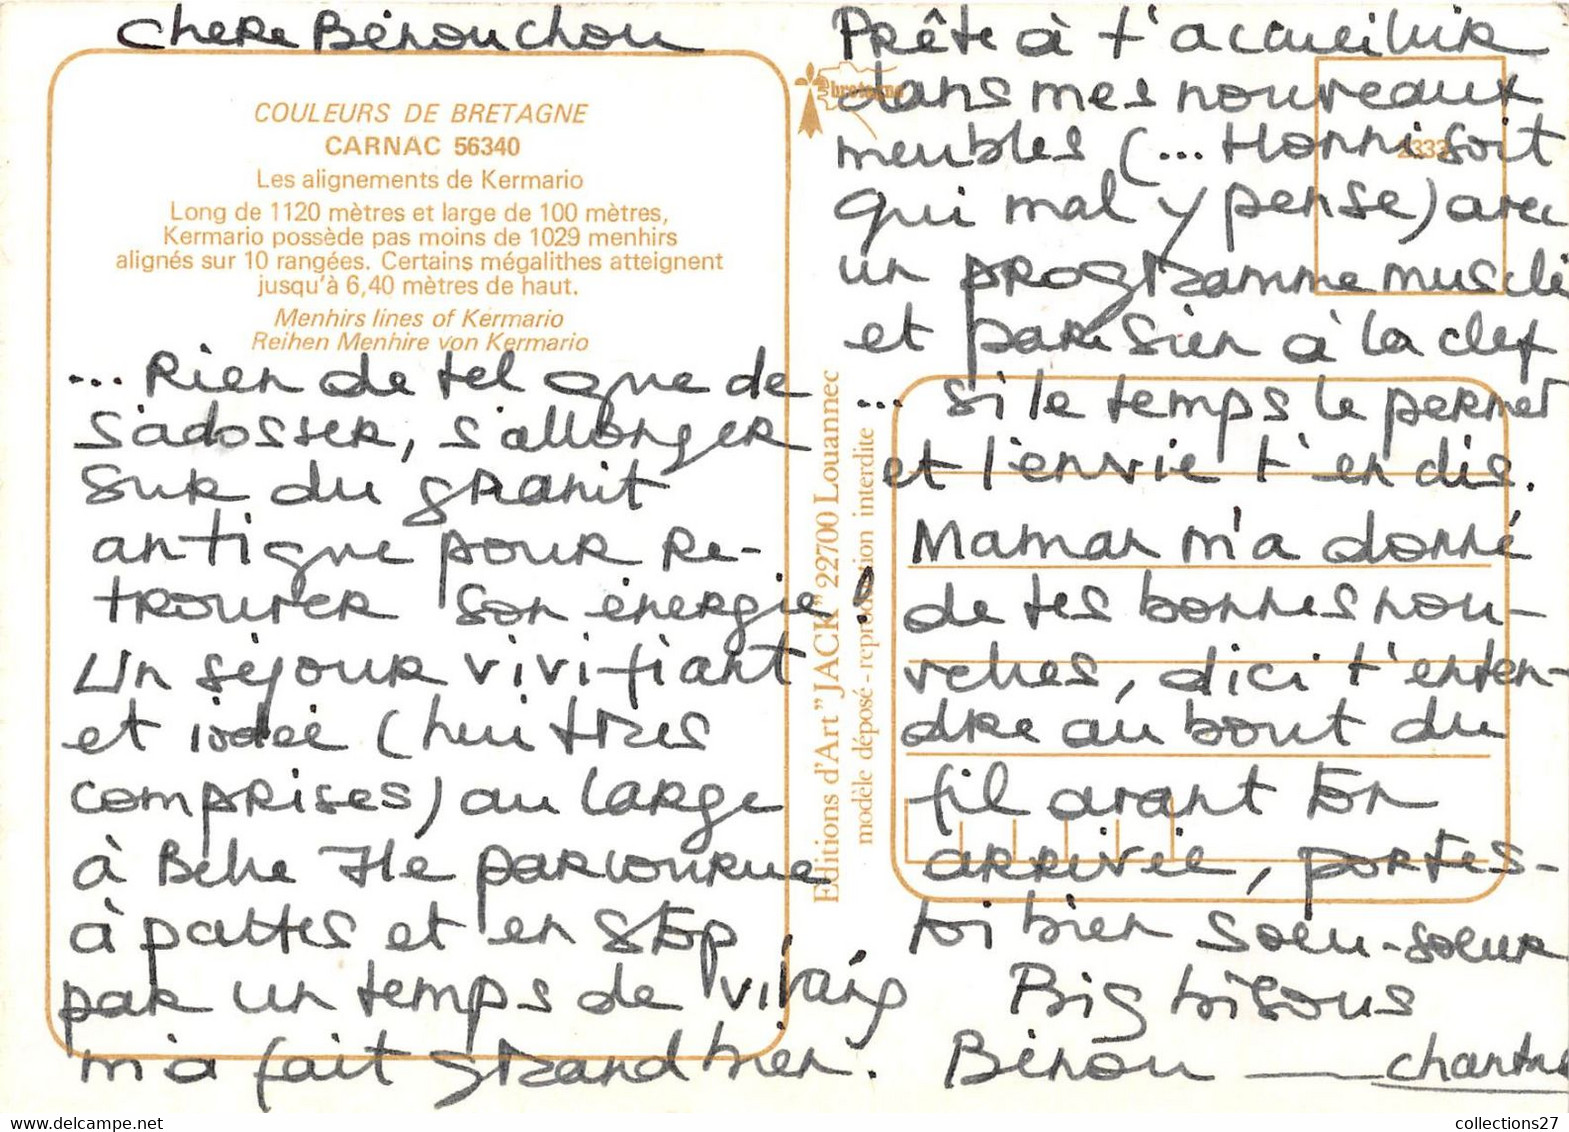 Chere Bénouchon
COULEURS DE BRETAGNE
CARNAC 56340
Les alignements de Kermario
Long de 1120 mètres et large de 100 mètres,
Kermario possède pas moins de 1029 menhirs
alignés sur 10 rangées. Certains mégalithes atteignent
jusqu'à 6,40 mètres de haut.
Menhirs lines of Kermario
Reihen Menhire von Kermario
... Rien de tel que de
s'adosser, s'allonger
sur du granit
antique pour re-
trouver son énergie !
Un séjour vivifiant
et iodée (huitres
comprises) au large
à Belle Ile parcourue
à pattes et en stop
par un temps de
m'a fait grand bien.
Editions d'Art "JACK" 22700 Louannec
modèle déposé - reproduction interdite
bretagne
Prête à t'accueillir
dans mes nouveaux
meubles (... Honni soit
qui mal y pense) avec
un programme musclé
et parisien à la clef
... si le temps le permet
et l'envie t'en dis.
Maman m'a donné
de tes bonnes nou-
velles, d'ici t'enten-
dre au bout du
fil avant ton
arrivée, portes-
toi bien soeu-soeur
Big bisous
Bénou — Chantal
collections27